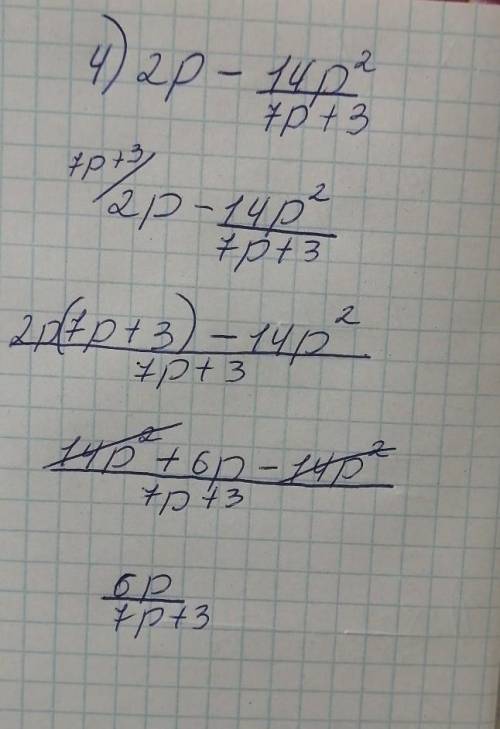 4) 2p - 14p²/7p+3
7p+3/ 2p - 14p²/7p+3
2p(7p+3) - 14p²/7p+3
14p² + 6p - 14p²/7p+3
6p/7p+3